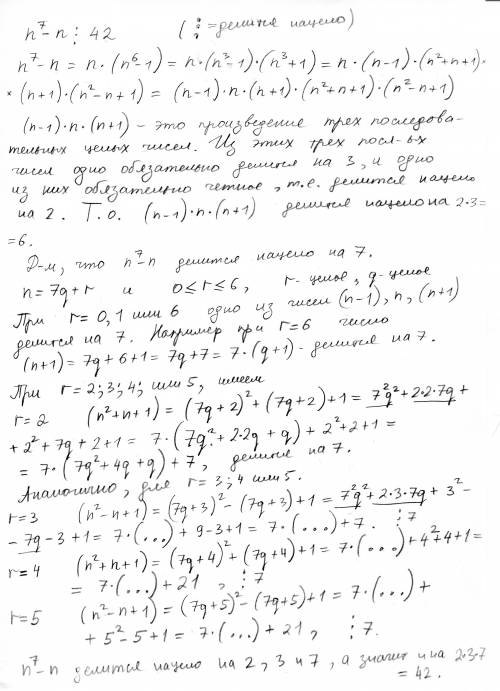 n⁷-n ⋮ 42 (⋮ = делится нацело)
n⁷-n = n·(n⁶-1) = n·(n³-1)·(n³+1) = n·(n-1)·(n²+n+1)×
×(n+1)·(n²-n+1) = (n-1)·n·(n+1)·(n²+n+1)·(n²-n+1)
(n-1)·n·(n+1) - это произведение трех последова-
тельных целых чисел. Из этих трех посл-ых
чисел одно обязательно делится на 3, и одно
из них обязательно четное, т.е. делится нацело
на 2. Т.о. (n-1)·n·(n+1) делится нацело на 2·3=
=6.
Д-м, что n⁷-n делится нацело на 7.
n=7q+r и 0≤r≤6, r-целое, q-целое
При r=0,1 или 6 одно из чисел (n-1), n, (n+1)
делится на 7. Например при r=6 число
(n+1)=7q+6+1=7q+7=7·(q+1)-делится на 7.
При r=2; 3; 4; или 5, имеем
r=2 (n²+n+1) = (7q+2)²+(7q+2)+1 = 7²q²+2·2·7q+
+2²+7q+2+1 = 7·(7q²+2·2q+q)+2²+2+1 =
= 7·(7q²+4q+q)+7, делится на 7.
Аналогично, для r=3; 4 или 5.
r=3 (n²-n+1) = (7q+3)²-(7q+3)+1 = 7²q²+2·3·7q+3²-
-7q-3+1 = 7·(...)+9-3+1 = 7·(...)+7. ⋮7
r=4 (n²+n+1) = (7q+4)²+(7q+4)+1 = 7·(...)+4²+4+1 =
= 7·(...)+21, ⋮7
r=5 (n²-n+1) = (7q+5)²-(7q+5)+1 = 7·(...)+
+5²-5+1 = 7·(...)+21, ⋮7.
n⁷-n делится нацело на 2, 3 и 7, а значит и на 2·3·7
= 42.